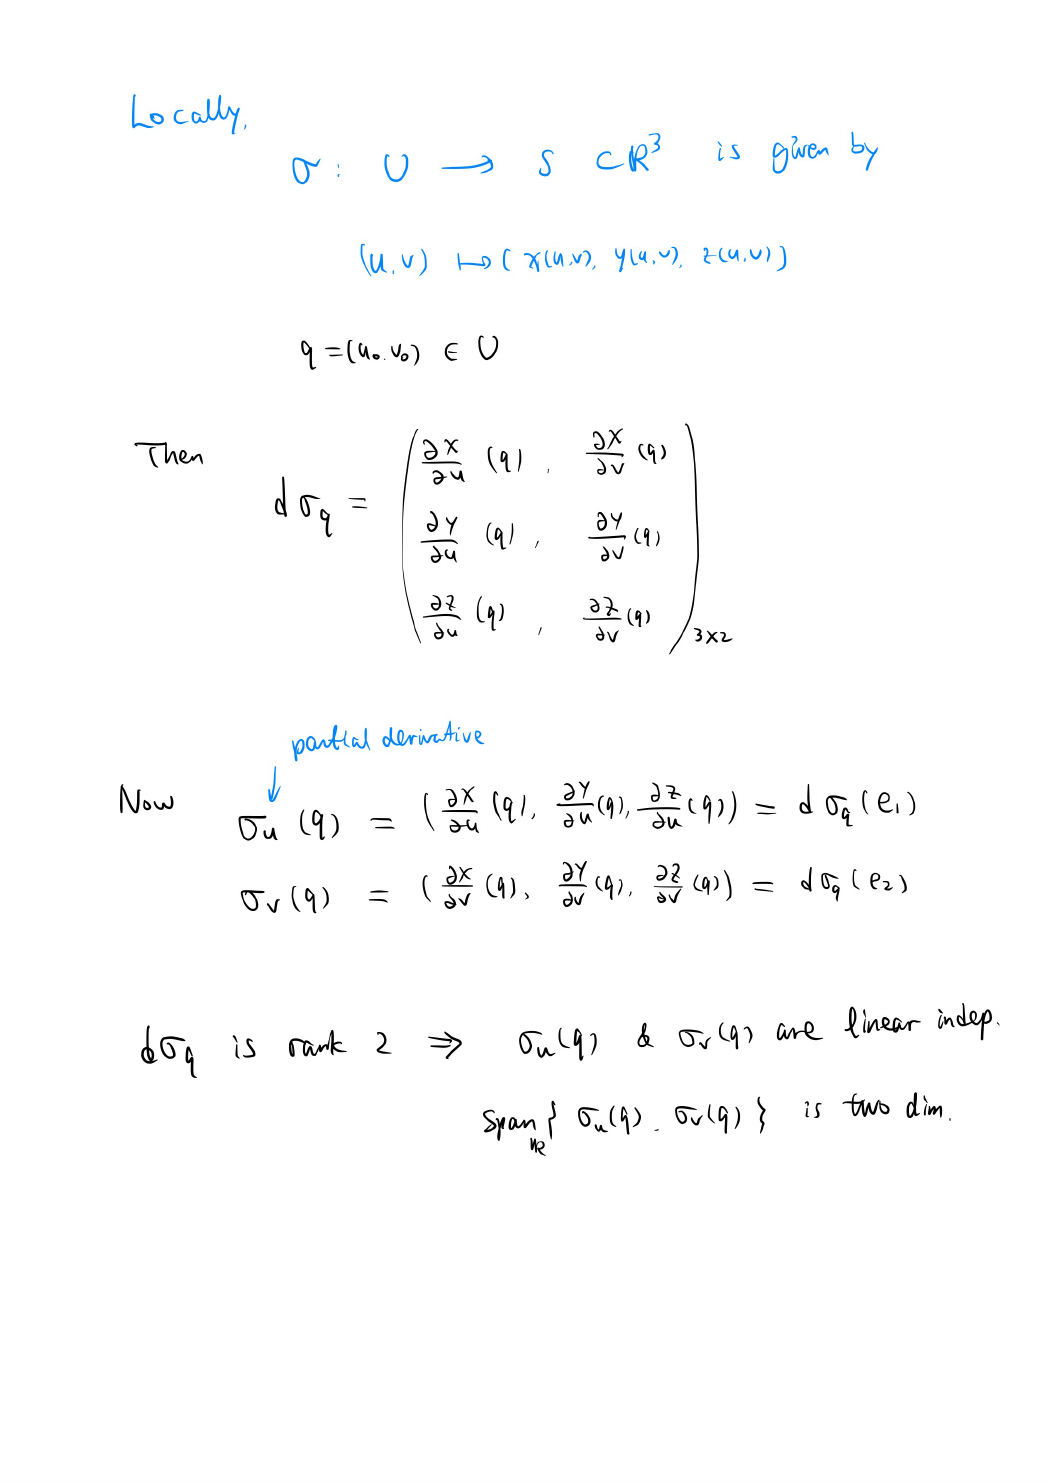 Locally,
σ : U → S ⊂ ℝ³ is given by
(u,v) ↦ ( x(u,v), y(u,v), z(u,v) )
q = (u₀,v₀) ∈ U
Then dσ_q = ( ∂x/∂u (q) , ∂x/∂v (q)
∂y/∂u (q) , ∂y/∂v (q)
∂z/∂u (q) , ∂z/∂v (q) )₃ₓ₂
partial derivative
Now σ_u (q) = ( ∂x/∂u (q), ∂y/∂u (q), ∂z/∂u (q) ) = dσ_q (e₁)
σ_v (q) = ( ∂x/∂v (q), ∂y/∂v (q), ∂z/∂v (q) ) = dσ_q (e₂)
dσ_q is rank 2 ⇒ σ_u(q) & σ_v(q) are linear indep.
Span_ℝ { σ_u(q), σ_v(q) } is two dim.